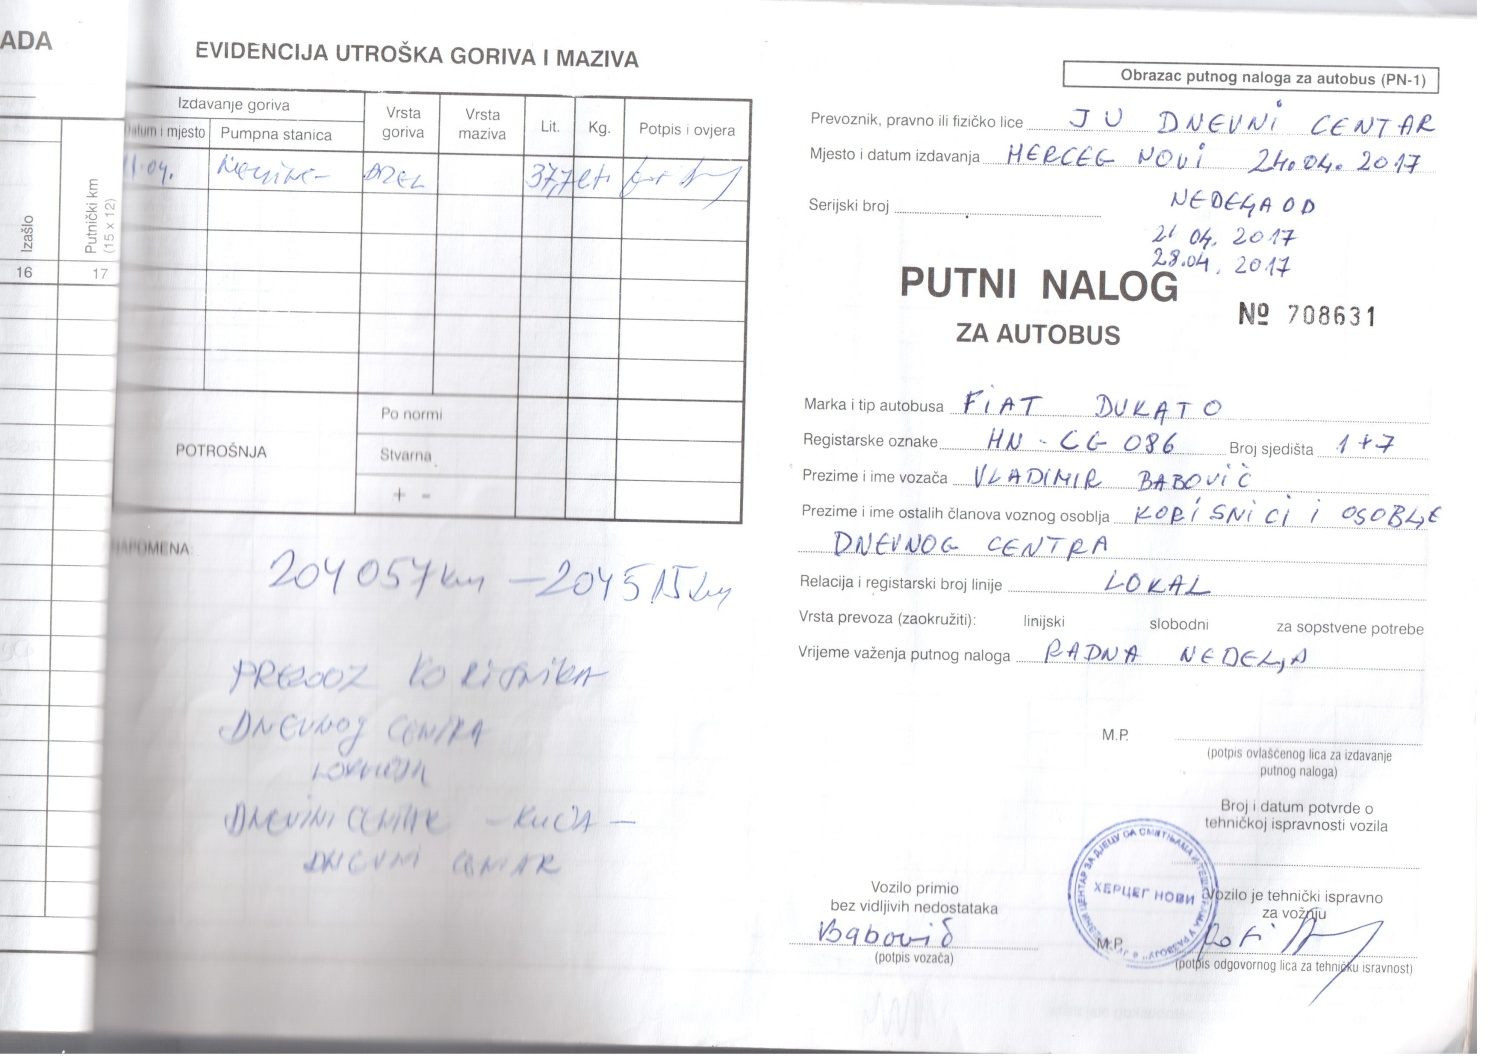 ADA
Izašlo
Putnički km
(15 x 12)
16 17
EVIDENCIJA UTROŠKA GORIVA I MAZIVA
Izdavanje goriva
Vrsta goriva
Vrsta maziva
Lit.
Kg.
Potpis i ovjera
Datum i mjesto
Pumpna stanica
11.04.
37,7 lit
POTROŠNJA
Po normi
Stvarna
+ -
NAPOMENA:
204057 km - 204515 km
PREVOZ KORISNIKA
DNEVNOG CENTRA
DNEVNI CENTAR - KUĆA -
DNEVNI CENTAR
Obrazac putnog naloga za autobus (PN-1)
Prevoznik, pravno ili fizičko lice JU DNEVNI CENTAR
Mjesto i datum izdavanja HERCEG NOVI 24.04.2017
Serijski broj
NEDEљA OD
21 04. 2017
28.04. 2017
PUTNI NALOG
№ 708631
ZA AUTOBUS
Marka i tip autobusa FIAT DUKATO
Registarske oznake HN-CG 086 Broj sjedišta 1+7
Prezime i ime vozača VLADIMIR BABOVIĆ
Prezime i ime ostalih članova voznog osoblja KORISNICI I OSOBLJE
DNEVNOG CENTRA
Relacija i registarski broj linije LOKAL
Vrsta prevoza (zaokružiti): linijski slobodni za sopstvene potrebe
Vrijeme važenja putnog naloga RADNA NEDELJA
M.P.
(potpis ovlašćenog lica za izdavanje
putnog naloga)
Broj i datum potvrde o
tehničkoj ispravnosti vozila
ХЕРЦЕГ НОВИ
Vozilo primio
bez vidljivih nedostataka
Babović
(potpis vozača)
Vozilo je tehnički ispravno
za vožnju
M.P.
(potpis odgovornog lica za tehničku isravnost)